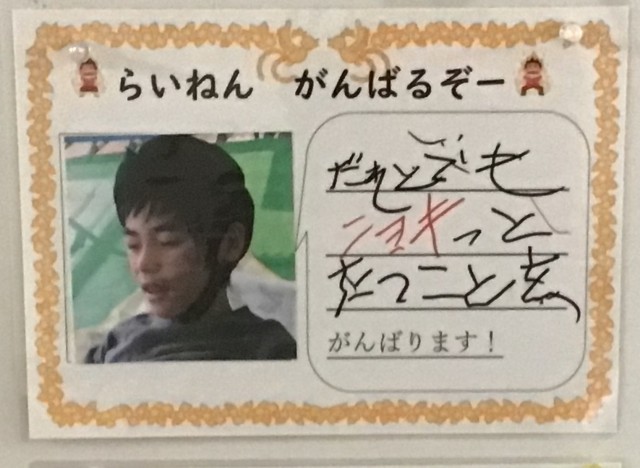 らいねん がんばるぞー
だれとでも
って
ことを
がんばります！